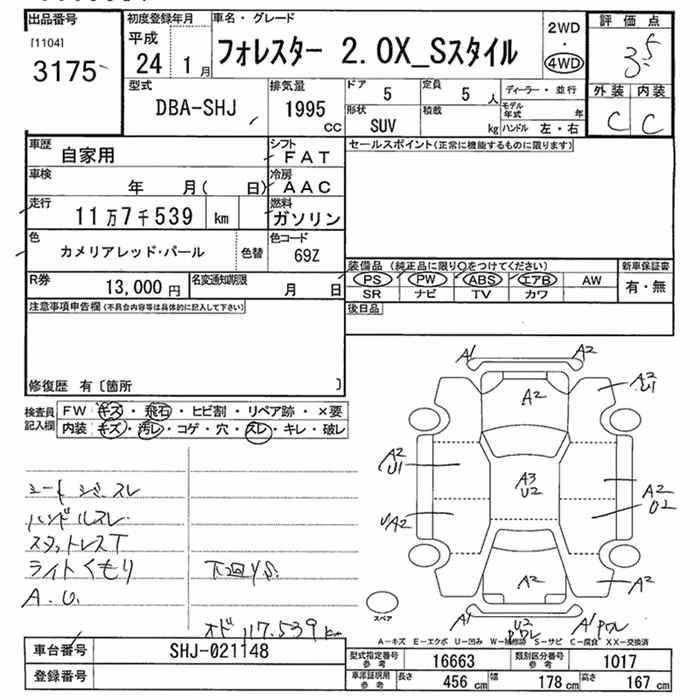 出品番号
[1104]
3175
初度登録年月
平成
24 1 月
車名・グレード
フォレスター 2.0X_Sスタイル
2WD
・
4WD
評価点
3.5
外装 内装
C C
型式
DBA-SHJ
排気量
1995
CC
ドア
5
定員
5 人
形状
SUV
積載
kg
ディーラー・並行
モデル年式 年
ハンドル 左・右
車歴
自家用
シフト
FAT
車検
年 月( 日)
冷房
AAC
走行
11万7千539 km
燃料
ガソリン
色
カメリアレッド・パール
色替
色コード
69Z
R券
13,000 円
名変通知期限
月 日
セールスポイント(正常に機能するものに限ります)
装備品 (純正品に限り○をつけてください)
PS PW ABS エアB AW
SR ナビ TV カワ
新車保証書
有・無
後日品
注意事項申告欄(不具合内容等は具体的に記入して下さい)
修復歴 有〔箇所 〕
検査員記入欄
FW キズ・飛石・ヒビ割・リペア跡・×要
内装 キズ・汚レ・コゲ・穴・スレ・キレ・破レ
シートシミスレ
ハンドルスレ
スタットレスT
ライトくもり
A.U.
下回りS
オド117.539km
A1 A2
A2 A2 U1
A2 U1
A3 U2
A2 U2
UA2
A2 A2
A1 U2 A1
スペア
A-キズ E-エクボ U-凹み W-補修跡 S-サビ C-腐食 XX-交換済
車台番号
SHJ-021148
登録番号
型式指定番号 参考
16663
類別区分番号 参考
1017
車庫証明用 参考
長さ 456 cm
幅 178 cm
高さ 167 cm